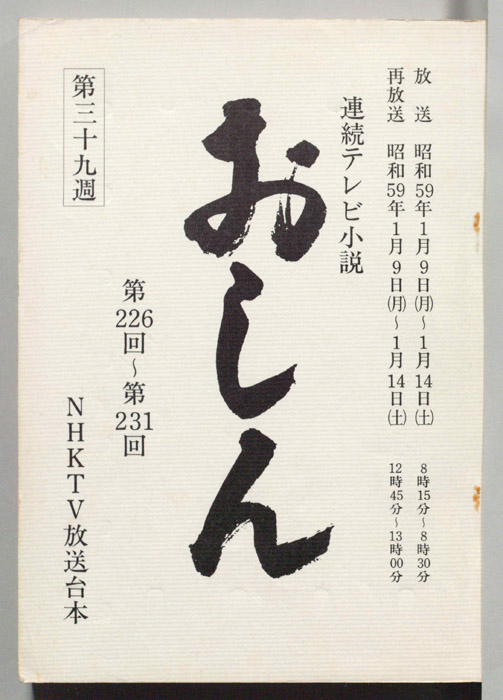 放　送　昭和59年1月9日㈪～1月14日㈯　8時15分～8時30分
再放送　昭和59年1月9日㈪～1月14日㈯　12時45分～13時00分
連続テレビ小説
おしん
第226回～第231回
第三十九週
NHKTV放送台本